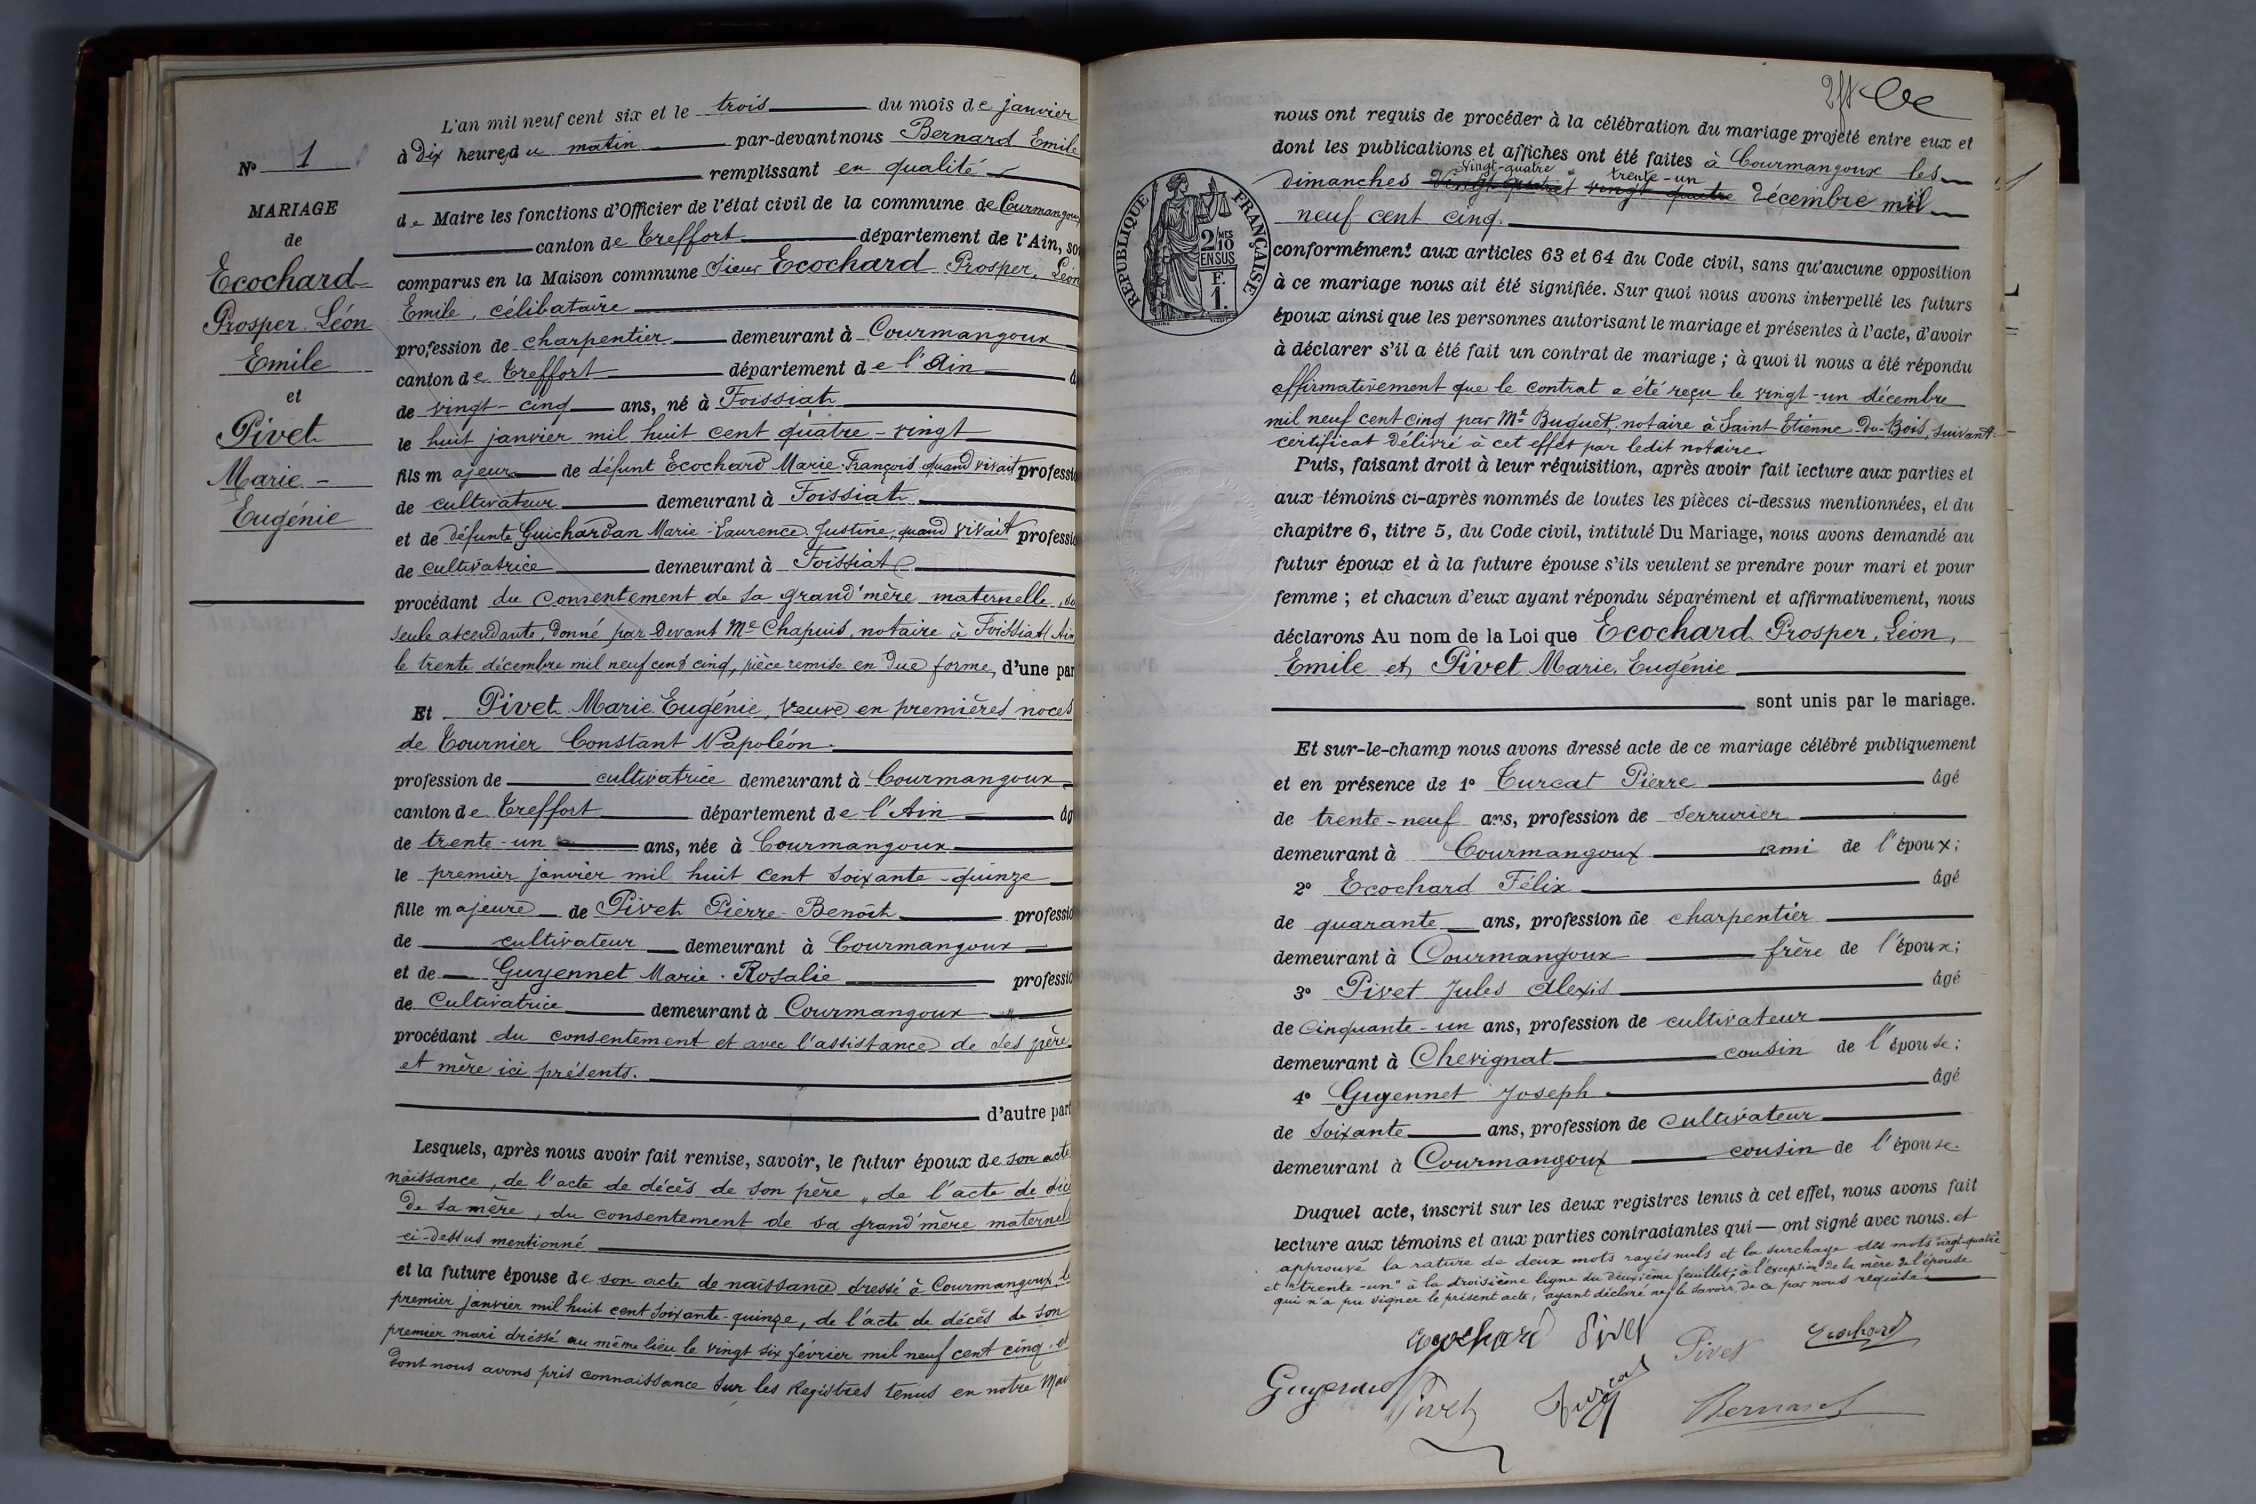 N° 1
MARIAGE
de
Ecochard
Prosper Léon
Emile
et
Pivet
Marie -
Eugénie
L'an mil neuf cent six et le trois du mois de janvier
à Dix heures du matin par-devant nous Bernard Emile
remplissant en qualité
de Maire les fonctions d'Officier de l'état civil de la commune de Courmangoux
canton de Treffort département de l'Ain, so
comparus en la Maison commune Sieur Ecochard Prosper, Léon
Emile, célibataire
profession de charpentier demeurant à Courmangoux
canton de Treffort département de l'Ain
de vingt-cinq ans, né à Foissiat
le huit janvier mil huit cent quatre-vingt
fils majeur de défunt Ecochard Marie-François quand vivait professio
de cultivateur demeurant à Foissiat
et de défunte Guichardan Marie-Laurence Justine, quand vivait professio
de cultivatrice demeurant à Foissiat
procédant du consentement de sa grand'mère maternelle, sa
seule ascendante, donné par devant Me Chapuis, notaire à Foissiat, Ain
le trente décembre mil neuf cent cinq, pièce remise en due forme, d'une par
Et Pivet Marie Eugénie, veuve en premières noces
de Tournier Constant Napoléon.
profession de cultivatrice demeurant à Courmangoux
canton de Treffort département de l'Ain âg
de trente-un ans, née à Courmangoux
le premier janvier mil huit cent soixante-quinze
fille majeure de Pivet Pierre-Benoît professio
de cultivateur demeurant à Courmangoux
et de Guyennet Marie-Rosalie professio
de Cultivatrice demeurant à Courmangoux
procédant du consentement et avec l'assistance de ses père
et mère ici présents.
d'autre part
Lesquels, après nous avoir fait remise, savoir, le futur époux de son acte
naissance, de l'acte de décès de son père, de l'acte de déc
de sa mère, du consentement de sa grand'mère maternel
ci-dessus mentionné
et la future épouse de son acte de naissance dressé à Courmangoux, le
premier janvier mil huit cent soixante-quinze, de l'acte de décès de son
premier mari dressé au même lieu le vingt six février mil neuf cent cinq, et
dont nous avons pris connaissance sur les Registres tenus en notre Mai
nous ont requis de procéder à la célébration du mariage projeté entre eux et
dont les publications et affiches ont été faites à Courmangoux les
vingt-quatre trente-un
dimanches vingt quatre et vingt quatre décembre mil
neuf cent cinq.
RÉPUBLIQUE FRANÇAISE
2/10 MES
EN SUS
F.
1.
conformément aux articles 63 et 64 du Code civil, sans qu'aucune opposition
à ce mariage nous ait été signifiée. Sur quoi nous avons interpellé les futurs
époux ainsi que les personnes autorisant le mariage et présentes à l'acte, d'avoir
à déclarer s'il a été fait un contrat de mariage ; à quoi il nous a été répondu
affirmativement que le contrat a été reçu le vingt-un décembre
mil neuf cent cinq par Me Buguet, notaire à Saint Etienne-Du-Bois, suivant
certificat délivré à cet effet par ledit notaire.
Puis, faisant droit à leur réquisition, après avoir fait lecture aux parties et
aux témoins ci-après nommés de toutes les pièces ci-dessus mentionnées, et du
chapitre 6, titre 5, du Code civil, intitulé Du Mariage, nous avons demandé au
futur époux et à la future épouse s'ils veulent se prendre pour mari et pour
femme ; et chacun d'eux ayant répondu séparément et affirmativement, nous
déclarons Au nom de la Loi que Ecochard Prosper, Léon,
Emile et Pivet Marie, Eugénie
sont unis par le mariage.
Et sur-le-champ nous avons dressé acte de ce mariage célébré publiquement
et en présence de 1° Turcat Pierre âgé
de trente-neuf ans, profession de serrurier
demeurant à Courmangoux ami de l'époux;
2° Ecochard Félix âgé
de quarante ans, profession de charpentier
demeurant à Courmangoux frère de l'époux;
3° Pivet Jules Alexis âgé
de Cinquante-un ans, profession de cultivateur
demeurant à Chevignat cousin de l'épouse;
4° Guyennet Joseph âgé
de soixante ans, profession de Cultivateur
demeurant à Courmangoux cousin de l'épouse.
Duquel acte, inscrit sur les deux registres tenus à cet effet, nous avons fait
lecture aux témoins et aux parties contractantes qui — ont signé avec nous. et
approuvé la rature de deux mots rayés nuls et la surcharge des mots "vingt-quatre"
et "trente-un" à la troisième ligne du deuxième feuillet, à l'exception de la mère de l'épouse
qui n'a pu signer le présent acte, ayant déclaré ne le savoir, de ce par nous requise.
Ecochard Pivet Pivet Ecochard
Guyennet Pivet Turcat Bernard